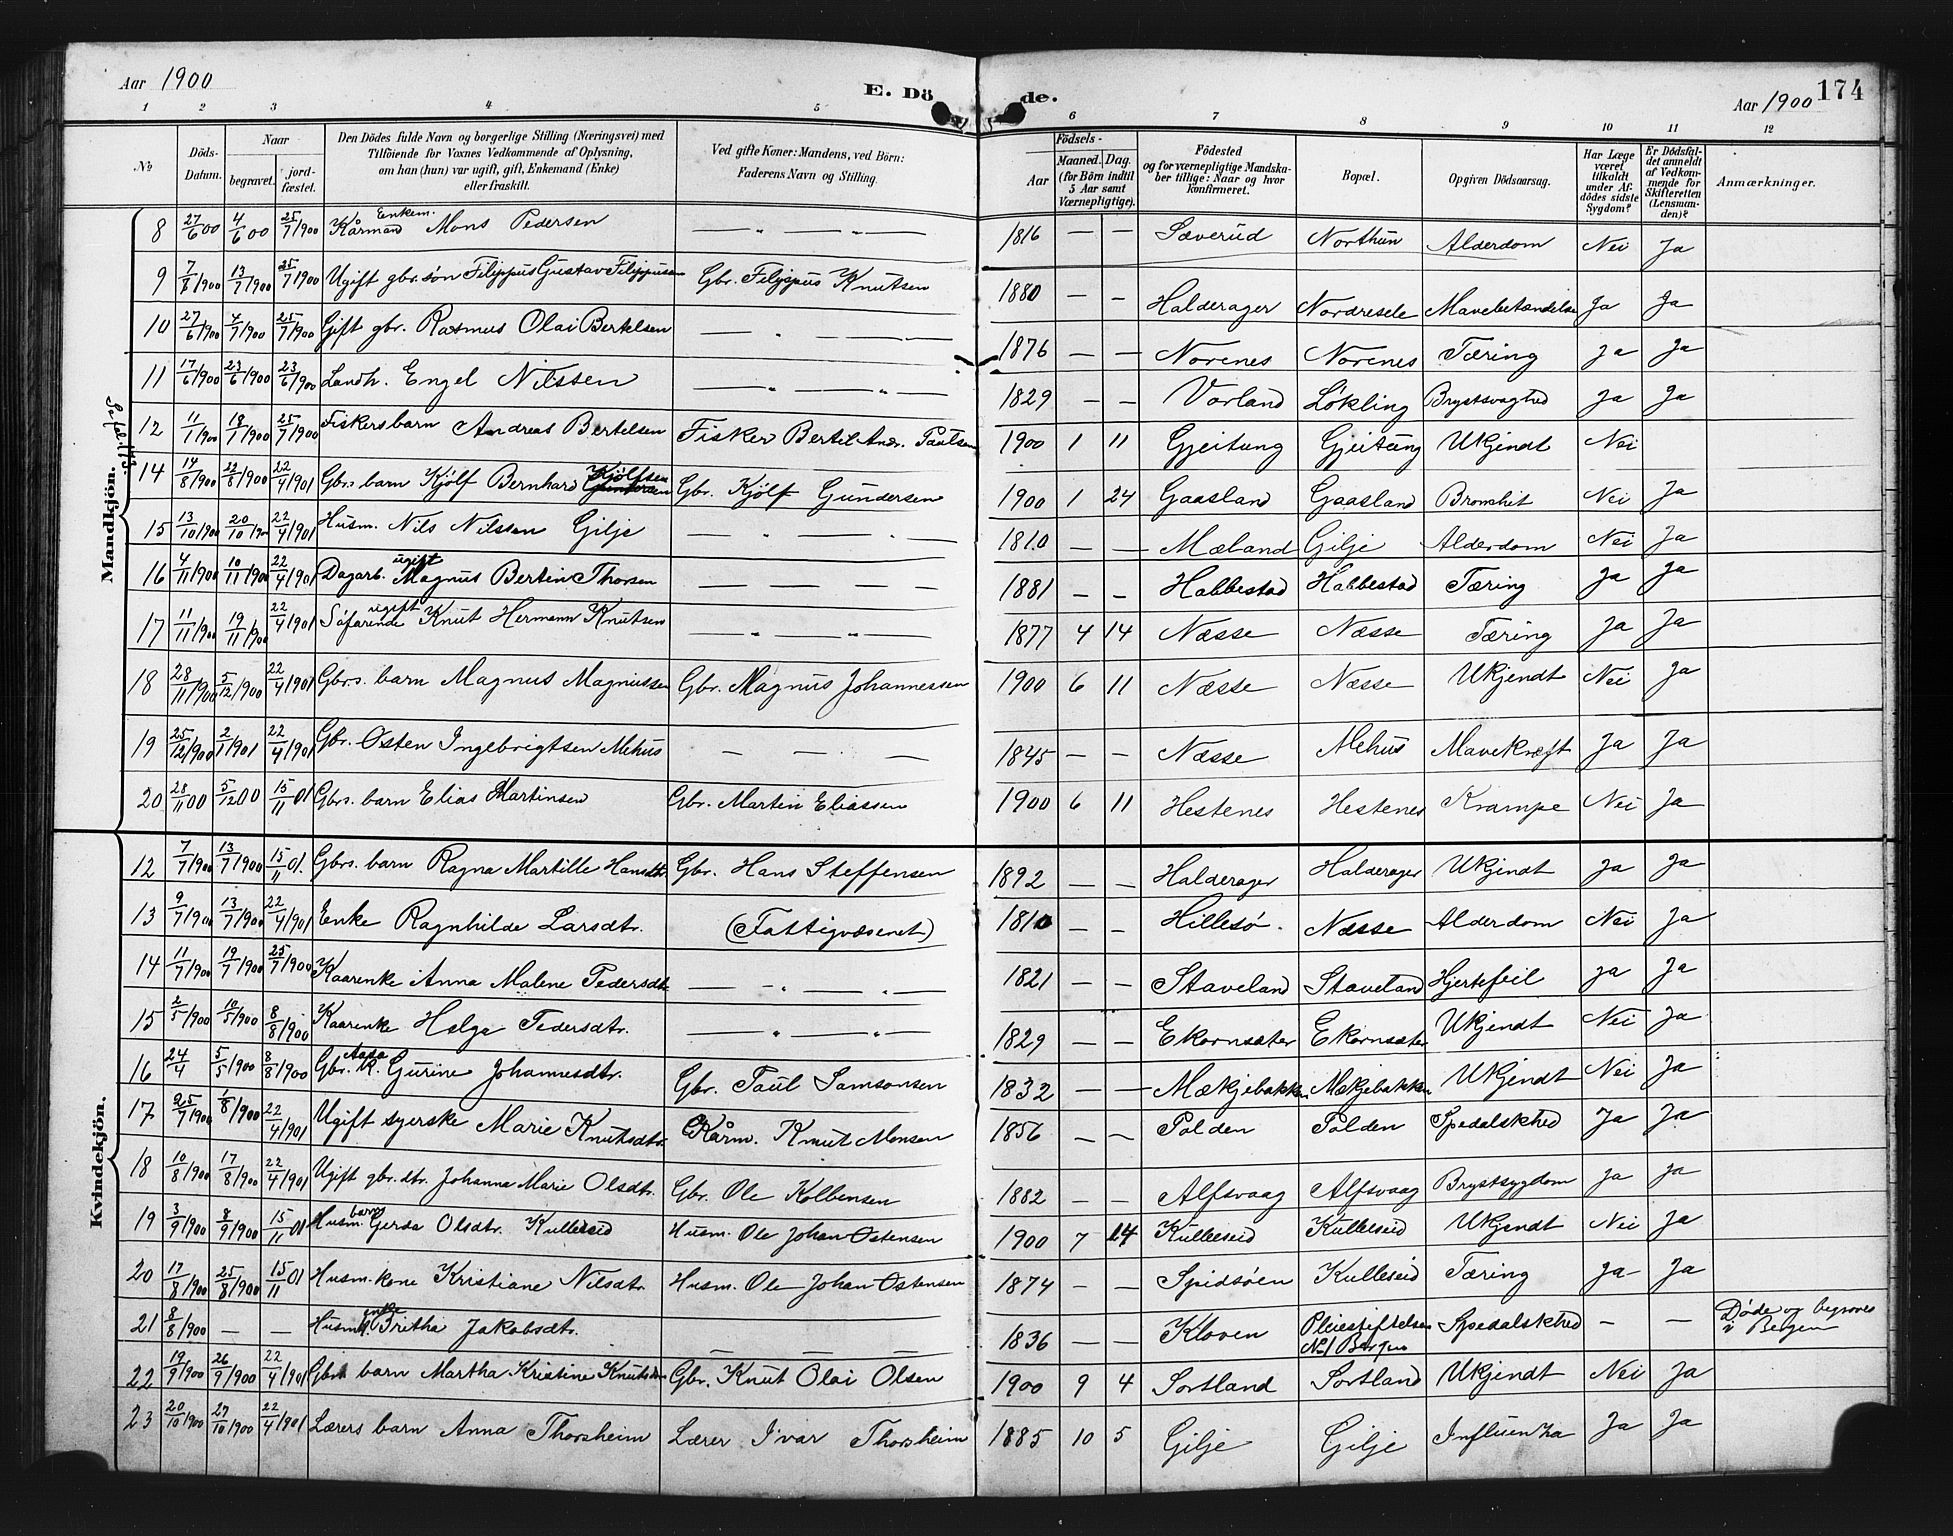 Aar 1900
E. Dö
de.
Aar 1900
174
1 2 3 4 5 6 7 8 9 10 11 12
No
Döds-Datum.
Naar
begravet.
jord-fæstet.
Den Dödes fulde Navn og borgerlige Stilling (Næringsvei) med
Tilföiende for Voxnes Vedkommende af Oplysning,
om han (hun) var ugift, gift, Enkemand (Enke)
eller fraskilt.
Ved gifte Koner: Mandens, ved Börn:
Faderens Navn og Stilling.
Födsels-
Aar
Maaned. Dag.
(for Börn indtil
5 Aar samt
Værnepligtige).
Födested
og for værnepligtige Mandska-
ber tillige: Naar og hvor
konfirmeret.
Bopæl.
Opgiven Dödsaarsag.
Har Læge
været
tilkaldt
under Af-
dødes sidste
Sygdom?
Er Dödsfal-
det anmeldt
af Vedkom-
mende for
Skifteretten
(Lensman-
den)?
Anmærkninger.
Mandkjön.
8 27/6 00 4/6 00 25/7 1900 Kårmand Enkem. Mons Pedersen — „ — „ — 1816 — — Sæverud Northun Alderdom Nei Ja
9 7/8 1900 13/7 1900 25/7 1900 Ugift gbr. søn Filippus Gustav Filippusen Gbr. Filippus Knutsen 1880 — — Halderager Nordresele Mavebetændelse Ja Ja
10 27/6 1900 4/7 1900 25/7 1900 Gift gbr. Rasmus Olai Bertelsen — „ — „ — 1876 — — Norenes Norenes Tæring Ja Ja
11 17/6 1900 23/6 1900 23/6 1900 Landh. Engel Nilssen — „ — „ — 1829 — — Vorland Løkling Brystsvaghed Ja Ja
12 11/1 1900 18/1 1900 25/7 1900 Fiskersbarn Andreas Bertelsen Fisker Bertel Andr. Paulsen 1900 1 11 Gjeitung Gjeitung Ukjendt Nei
14 14/8 1900 22/8 1900 22/4 1901 Gbrs barn Kjølf Bernhard Kjølfsen Gbr. Kjølf Gundersen 1900 1 24 Gaasland Gaasland Bronchit Nei Ja
15 13/10 1900 20/10 1900 22/4 1901 Husm. Nils Nilssen Gilje — „ — „ — 1810 — — Mæland Gilje Alderdom Nei Ja
16 4/11 1900 10/11 1900 22/4 1901 Dagarb. ugift Magnus Bertin Thorsen — — — — 1881 — — Habbestad Habbestad Tæring Ja Ja
17 11/11 1900 19/11 1900 22/4 1901 Søfarende ugift Knut Hermann Knutsen — „ — „ — 1877 4 14 Næsse Næsse Tæring Ja Ja
18 28/11 1900 5/12 1900 22/4 1901 Gbrs. barn Magnus Magnussen Gbr. Magnus Johannessen 1900 6 11 Næsse Næsse Ukjendt Nei Ja
19 25/12 1900 2/1 1901 22/4 1901 Gbr. Østen Ingebrigtsen Mehus — — — 1845 — — Næsse Mehus Mavekræft Ja Ja
20 28/11 00 5/12 00 15/11 01 Gbrs. barn Elias Martinsen Gbr. Martin Eliassen 1900 6 11 Hestenes Hestenes Krampe Nei Ja
Kvindekjön.
12 7/7 1900 13/7 1900 15/11 01. Gbrs. barn Ragna Martille Hansdtr. Gbr. Hans Steffensen 1892 — — Halderager Halderager Ukjendt Ja Ja
13 9/7 1900 13/7 1900 22/4 1901 Enke Ragnhilde Larsdtr. (Fattigvæsenet) 1810 — — Hillesø. Næsse Alderdom Nei Ja
14 11/7 1900 19/7 1900 25/7 1900 Kaarenke Anna Malene Pedersdtr — „ — „ — 1821 — — Staveland Staveland Hjertefeil Ja Ja
15 2/5 1900 10/5 1900 8/8 1900 Kaarenke Helga Pedersdtr. — „ — „ — 1829 — — Ekornsæter Ekornsæter Ukjendt Nei Ja
16 24/4 5/5 1900 8/8 1900 Gbr. k. Aasa Gurine Johannesdtr. Gbr. Paul Samsonsen 1832 — — Mækjebakken Mækjebakken Ukjendt Nei Ja
17 25/7 1900 1/8 1900 22/4 1901 Ugift syerske Marie Knutsdtr. Kårm. Knut Monsen 1856 — — Polden Polden Spedalskhed Ja Ja
18 10/8 1900 17/8 1900 22/4 1901 Ugift gbr. dtr. Johanna Marie Olsdtr. Gbr. Ole Kolbensen 1882 — — Alfsvaag Alfsvaag Brystsygdom Ja Ja
19 3/9 1900 8/9 1900 15/11 01 Husm. barn Gerda Olsdtr. Kulleseid Husm. Ole Johan Østensen 1900 7 14 Kulleseid Kulleseid Ukjendt Nei Ja
20 17/8 1900 25/8 1900 15/11 01 Husm. kone Kristiane Nilsdtr. Husm. Ole Johan Østensen 1874 — — Spidsøen Kulleseid Tæring Ja Ja
21 8/8 1900 — — Husm. enke Britha Jakobsdtr. — — — 1836 — — Kloven Pleiestiftelsen No 1 Bergen Spedalskhed — — Døde og begraves i Bergen
22 19/9 1900 26/9 1900 22/4 1901 Gbrs barn Martha Kristine Knutsdtr Gbr. Knut Olai Olsen 1900 9 4 Sortland Sortland Ukjendt Nei Ja
23 20/10 1900 27/10 1900 22/4 1901 Lærers barn Anna Thorsheim Lærer Ivar Thorsheim 1885 10 5 Gilje Gilje Influenza Ja Ja